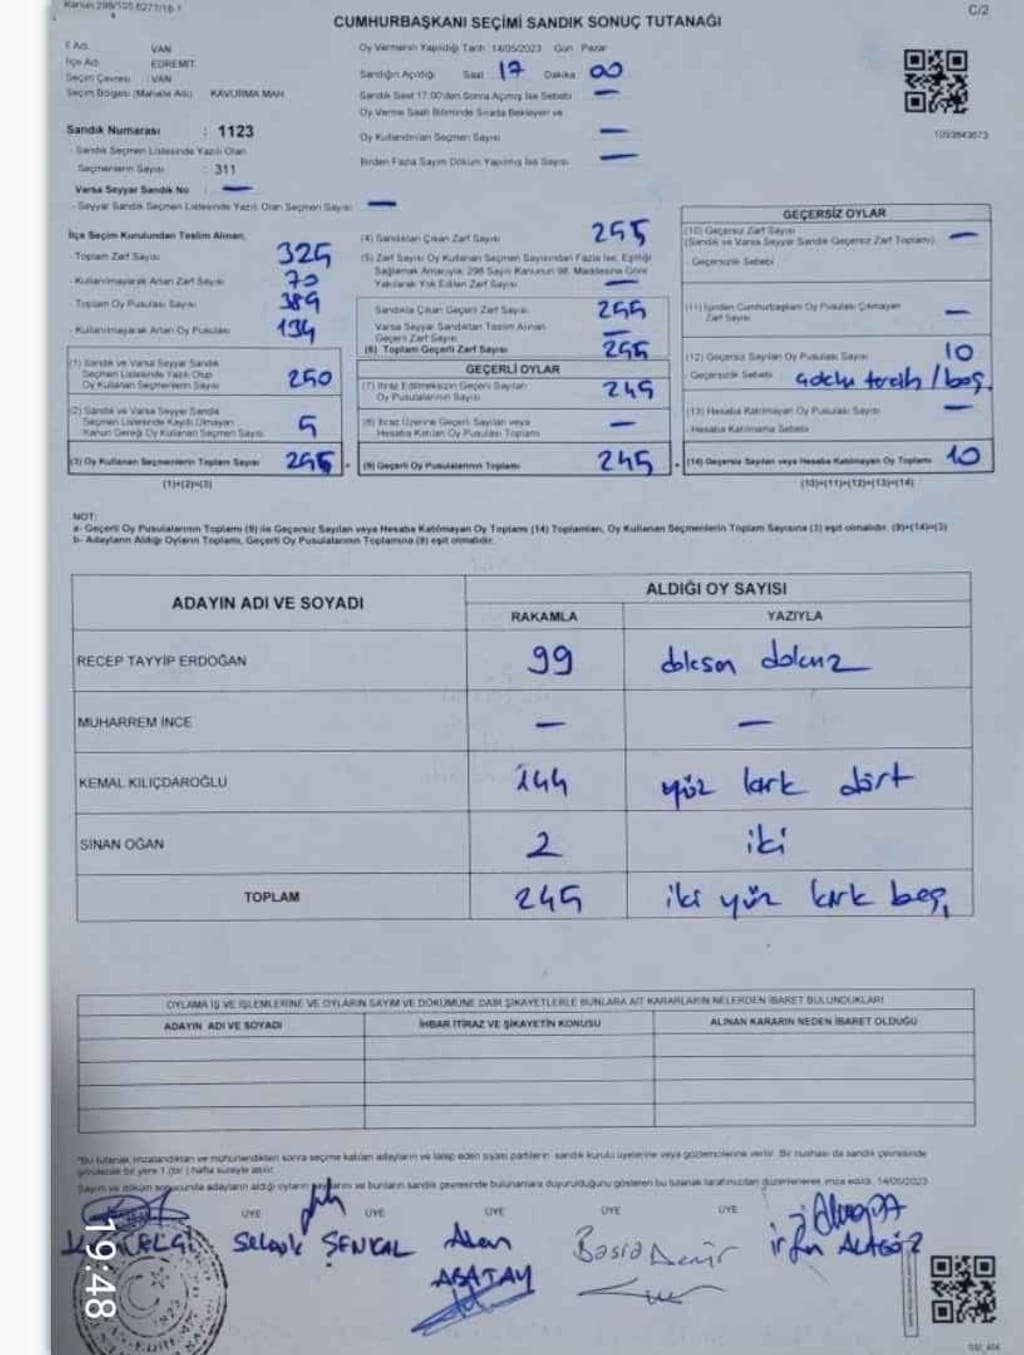 Kanun 298/105 6271/18-1
C/2
CUMHURBAŞKANI SEÇİMİ SANDIK SONUÇ TUTANAĞI
İl Adı VAN
İlçe Adı EDREMİT
Seçim Çevresi : VAN
Seçim Bölgesi (Mahalle Adı) KAVURMA MAH.
Oy Vermenin Yapıldığı Tarih : 14/05/2023 Gün : Pazar
Sandığın Açıldığı Saat : 17 Dakika : 00
Sandık Saat 17:00'den Sonra Açılmış İse Sebebi —
Oy Verme Saati Bitiminde Sırada Bekleyen ve
Oy Kullandırılan Seçmen Sayısı —
Birden Fazla Sayım Döküm Yapılmış İse Sayısı —
Sandık Numarası : 1123
- Sandık Seçmen Listesinde Yazılı Olan
Seçmenlerin Sayısı : 311
Varsa Seyyar Sandık No : —
- Seyyar Sandık Seçmen Listesinde Yazılı Olan Seçmen Sayısı : —
İlçe Seçim Kurulundan Teslim Alınan,
- Toplam Zarf Sayısı 325
- Kullanılmayarak Artan Zarf Sayısı 70
- Toplam Oy Pusulası Sayısı 389
- Kullanılmayarak Artan Oy Pusulası 134
(1) Sandık ve Varsa Seyyar Sandık
Seçmen Listesinde Yazılı Olup
Oy Kullanan Seçmenlerin Sayısı 250
(2) Sandık ve Varsa Seyyar Sandık
Seçmen Listesinde Kayıtlı Olmayan
Kanun Gereği Oy Kullanan Seçmen Sayısı 5
(3) Oy Kullanan Seçmenlerin Toplam Sayısı 255
(1)+(2)=(3)
(4) Sandıktan Çıkan Zarf Sayısı 255
(5) Zarf Sayısı Oy Kullanan Seçmen Sayısından Fazla İse, Eşitliği
Sağlamak Amacıyla, 298 Sayılı Kanunun 98. Maddesine Göre
Yakılarak Yok Edilen Zarf Sayısı —
Sandıkta Çıkan Geçerli Zarf Sayısı 255
Varsa Seyyar Sandıktan Teslim Alınan
Geçerli Zarf Sayısı —
(6) Toplam Geçerli Zarf Sayısı 255
GEÇERLİ OYLAR
(7) İtiraz Edilmeksizin Geçerli Sayılan
Oy Pusulalarının Sayısı 245
(8) İtiraz Üzerine Geçerli Sayılan veya
Hesaba Katılan Oy Pusulası Toplamı —
(9) Geçerli Oy Pusulalarının Toplamı 245
GEÇERSİZ OYLAR
(10) Geçersiz Zarf Sayısı —
(Sandık ve Varsa Seyyar Sandık Geçersiz Zarf Toplamı)
- Geçersizlik Sebebi
(11) İçinden Cumhurbaşkanı Oy Pusulası Çıkmayan
Zarf Sayısı —
(12) Geçersiz Sayılan Oy Pusulası Sayısı 10
- Geçersizlik Sebebi tercih / boş
(13) Hesaba Katılmayan Oy Pusulası Sayısı —
- Hesaba Katılmama Sebebi
(14) Geçersiz Sayılan veya Hesaba Katılmayan Oy Toplamı 10
(10)+(11)+(12)+(13)=(14)
NOT:
a- Geçerli Oy Pusulalarının Toplamı (9) ile Geçersiz Sayılan veya Hesaba Katılmayan Oy Toplamı (14) Toplamları, Oy Kullanan Seçmenlerin Toplam Sayısına (3) eşit olmalıdır. (9)+(14)=(3)
b- Adayların Aldığı Oyların Toplamı, Geçerli Oy Pusulalarının Toplamına (9) eşit olmalıdır.
ADAYIN ADI VE SOYADI
ALDIĞI OY SAYISI
RAKAMLA YAZIYLA
RECEP TAYYİP ERDOĞAN 99 doksan dokuz
MUHARREM İNCE — —
KEMAL KILIÇDAROĞLU 144 yüz kırk dört
SİNAN OĞAN 2 iki
TOPLAM 245 iki yüz kırk beş
OYLAMA İŞ VE İŞLEMLERİNE VE OYLARIN SAYIM VE DÖKÜMÜNE DAİR ŞİKAYETLERLE BUNLARA AİT KARARLARIN NELERDEN İBARET BULUNDUKLARI
ADAYIN ADI VE SOYADI İHBAR İTİRAZ VE ŞİKAYETİN KONUSU ALINAN KARARIN NEDEN İBARET OLDUĞU
*Bu tutanak imzalandıktan ve mühürlendikten sonra seçime katılan adayların ve talep eden siyasi partilerin sandık kurulu üyelerine veya gözlemcilerine verilir. Bir nüshası da sandık çevresinde
görülecek bir yere 1 (bir) hafta süreyle asılır.
Sayım ve döküm sonucunda adayların aldığı oyların sayılarını ve bunların sandık çevresinde bulunanlara duyurulduğunu gösteren bu tutanak tarafımızdan düzenlenerek imza edildi. 14/05/2023
ÜYE ÜYE ÜYE ÜYE ÜYE
Selçuk ŞENKAL
ABATAY
Demir
İrfan ALAGÖZ
19:48